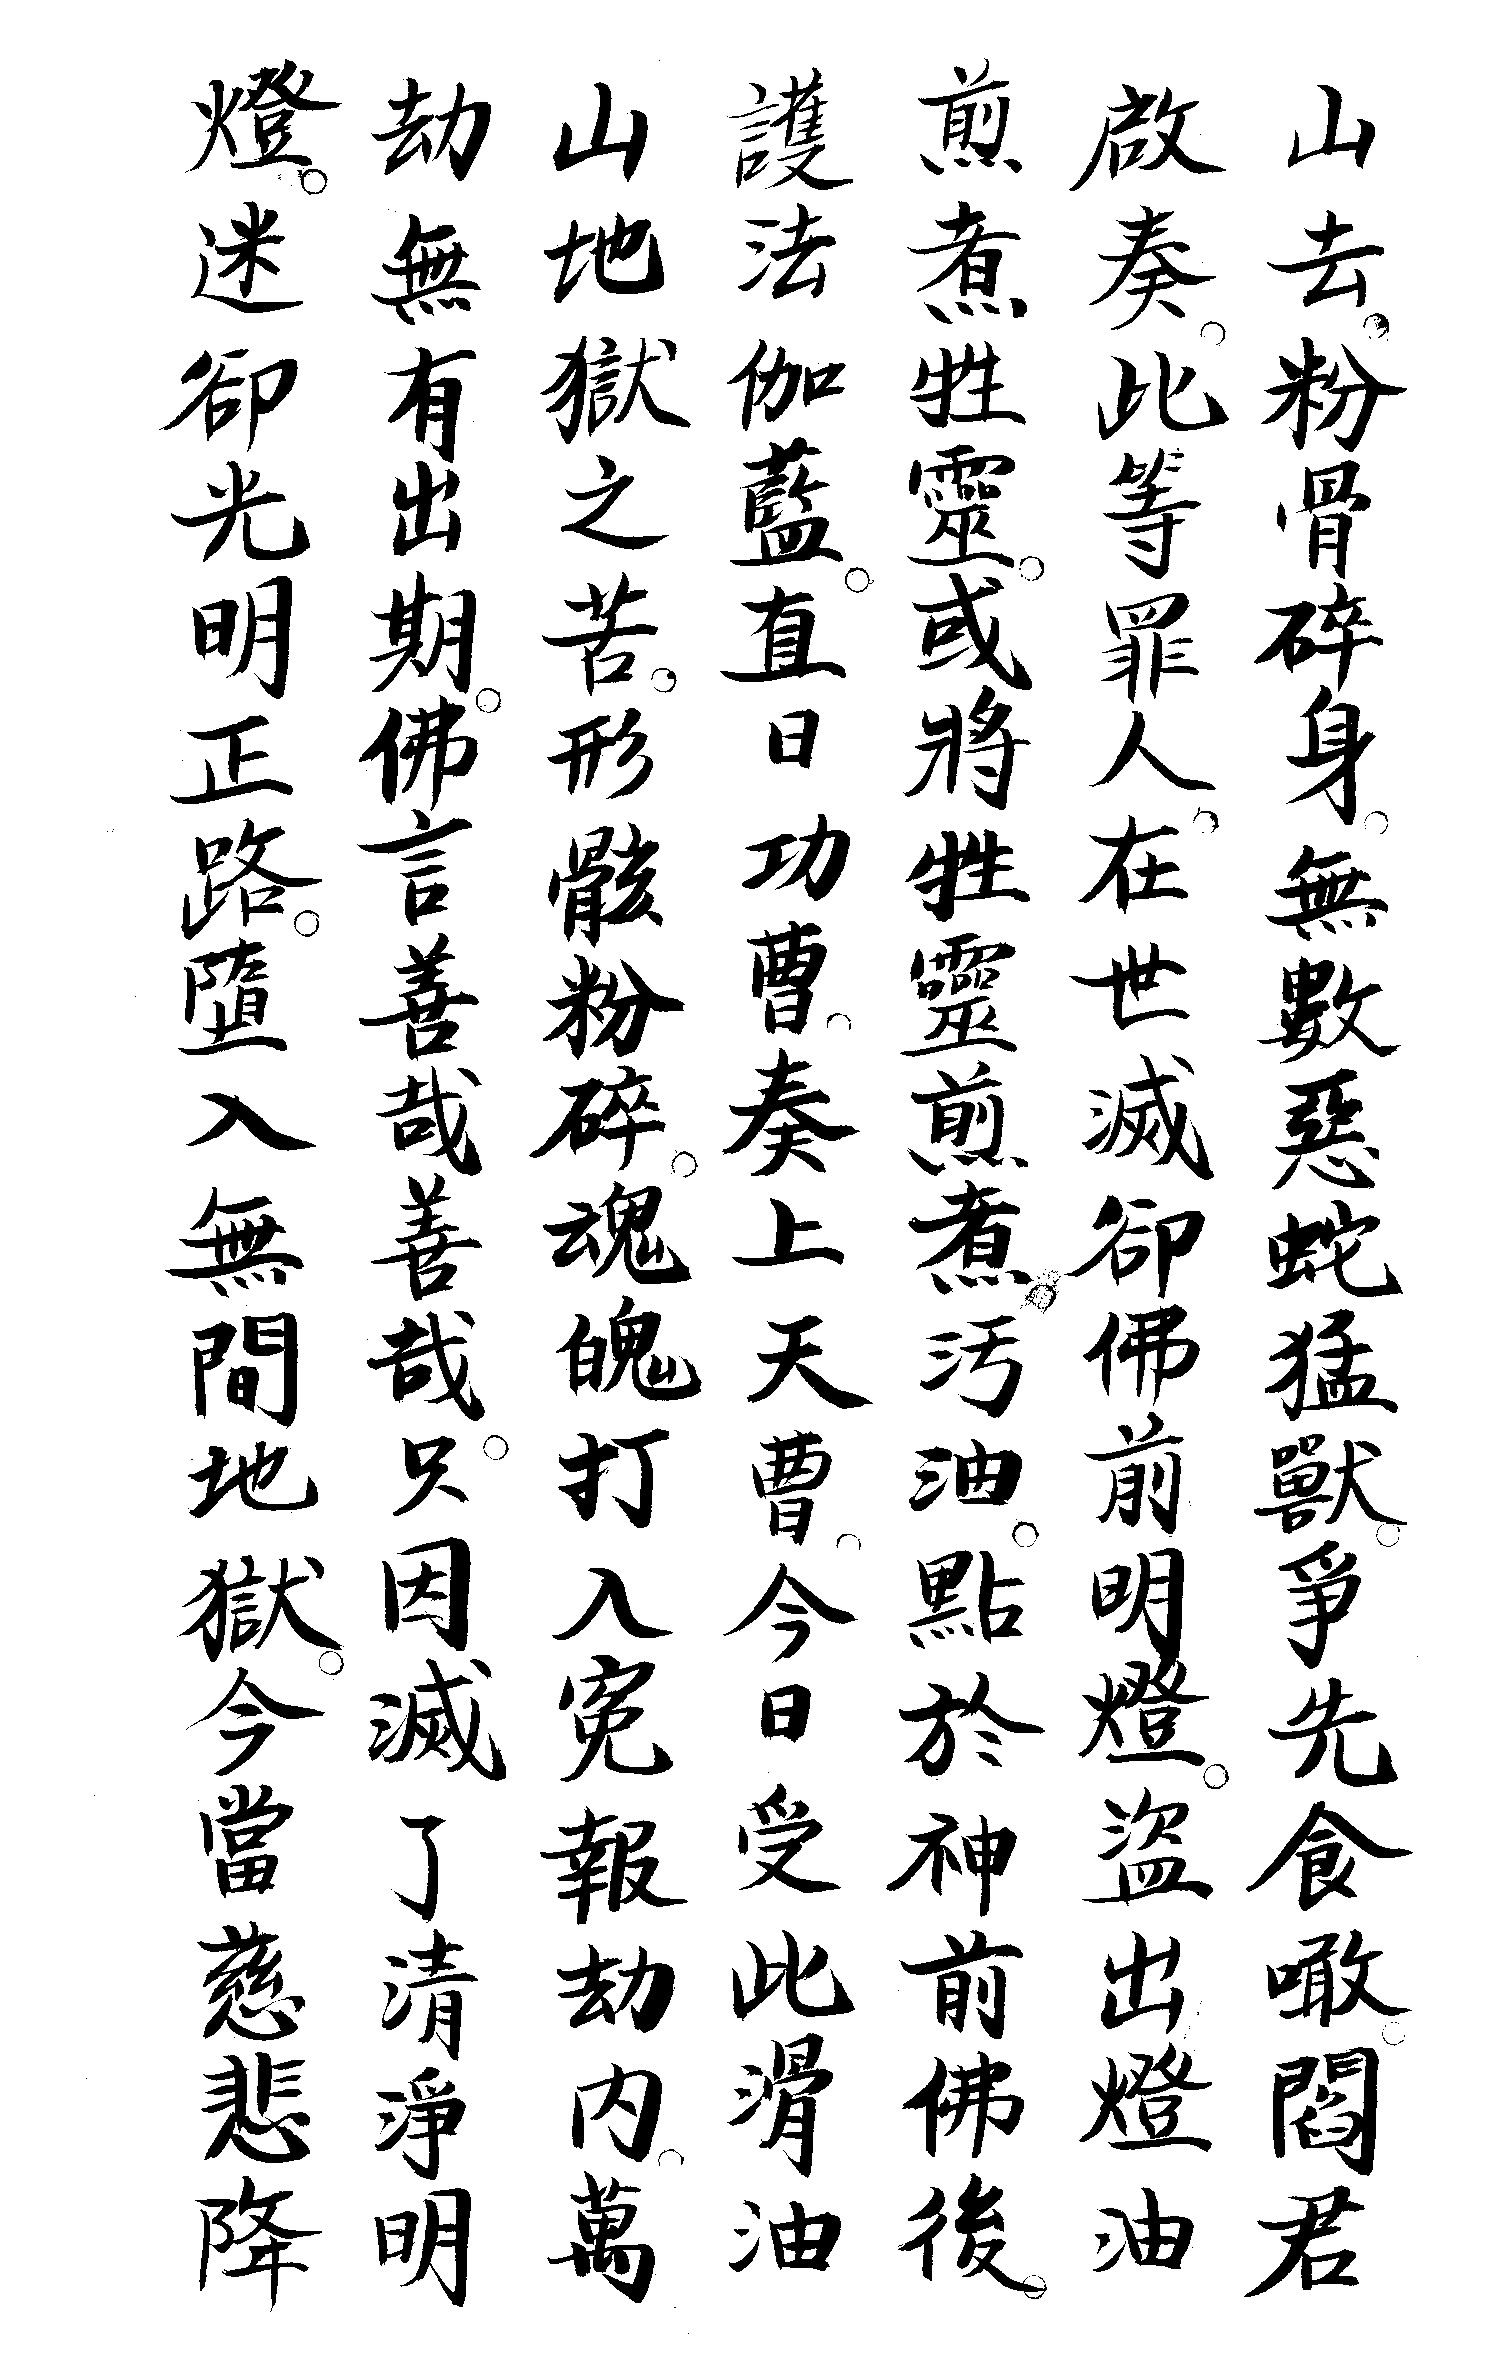 山去。粉骨碎身。無數惡蛇猛獸。爭先食噉。閻君
啟奏。此等罪人。在世滅卻佛前明燈。盜出燈油
煎煮牲靈。或將牲靈煎煮污油。點於神前佛後。
護法伽藍。直日功曹。奏上天曹。今日受此滑油
山地獄之苦。形骸粉碎。魂魄打入冤報劫內。萬
劫無有出期。佛言善哉善哉。只因滅了清淨明
燈。迷卻光明正路。墮入無間地獄。今當慈悲降